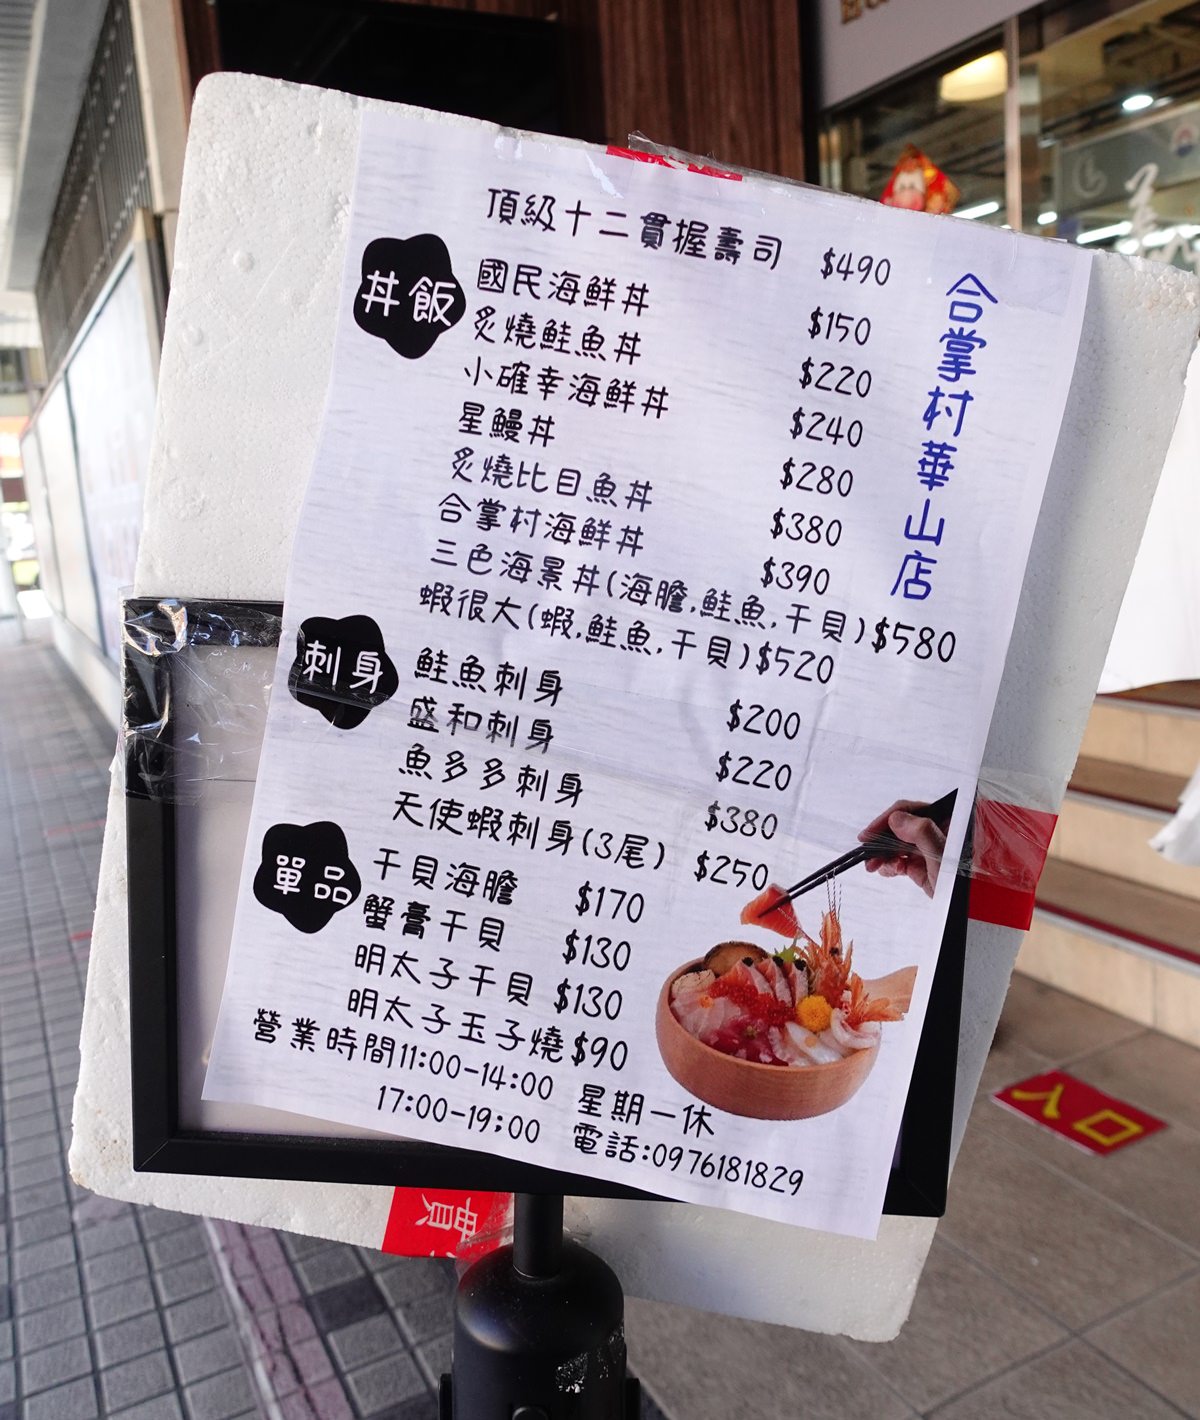 頂級十二貫握壽司 $490
丼飯
國民海鮮丼 $150
炙燒鮭魚丼 $220
小確幸海鮮丼 $240
星鰻丼 $280
炙燒比目魚丼 $380
合掌村海鮮丼 $390
三色海景丼(海膽.鮭魚.干貝) $580
蝦很大(蝦.鮭魚.干貝) $520
刺身
鮭魚刺身 $200
盛和刺身 $220
魚多多刺身 $380
天使蝦刺身(3尾) $250
單品
干貝海膽 $170
蟹膏干貝 $130
明太子干貝 $130
明太子玉子燒 $90
營業時間11:00-14:00 星期一休
17:00-19:00 電話:0976181829
合掌村華山店
入口